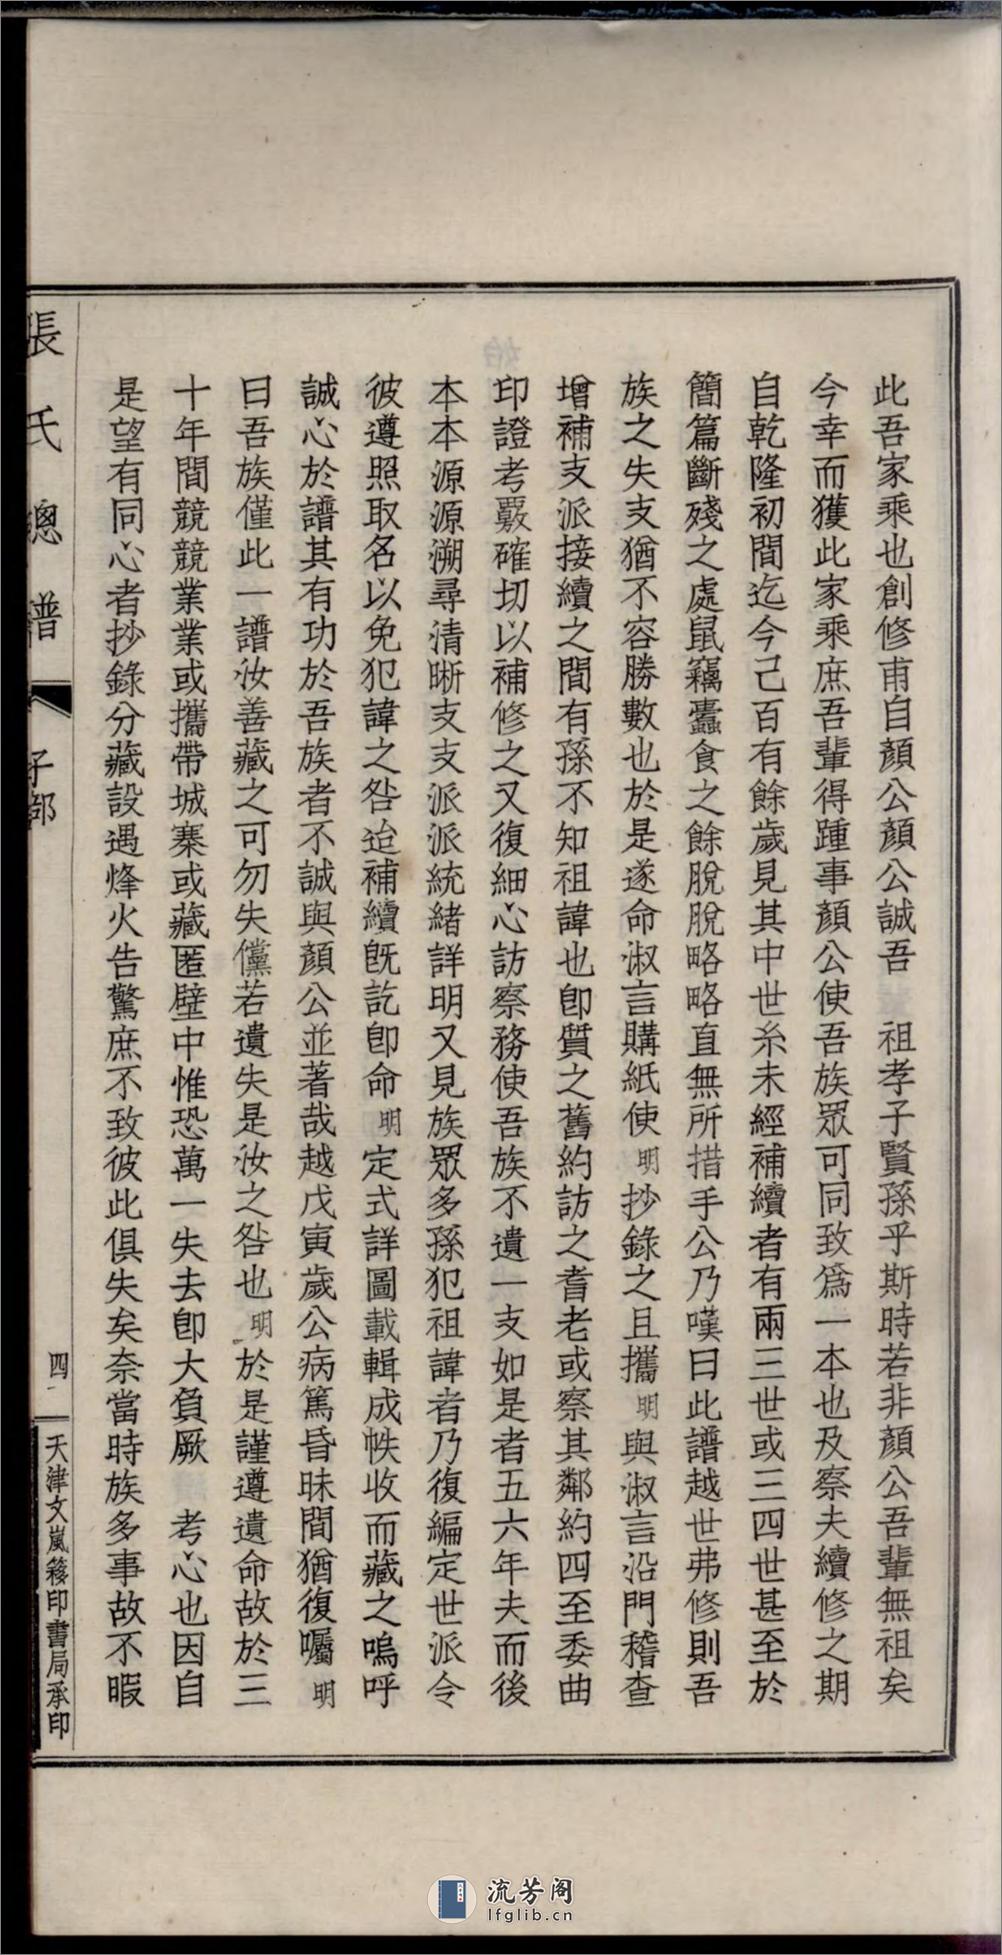 此吾家乘也創修甫自顏公顏公誠吾　祖孝子賢孫乎斯時若非顏公吾輩無祖矣
今幸而獲此家乘庶吾輩得踵事顏公使吾族眾可同致爲一本也及察夫續修之期
自乾隆初間迄今己百有餘歲見其中世糸未經補續者有兩三世或三四世甚至於
簡篇斷殘之處鼠竊蠹食之餘脫脫略略直無所措手公乃嘆曰此譜越世弗修則吾
族之失支猶不容勝數也於是遂命淑言購紙使明抄錄之且攜明與淑言沿門稽查
增補支派接續之間有孫不知祖諱也卽質之舊約訪之耆老或察其鄰約四至委曲
印證考覈確切以補修之又復細心訪察務使吾族不遺一支如是者五六年夫而後
本本源源溯尋清晰支支派派統緒詳明又見族眾多孫犯祖諱者乃復編定世派令
彼遵照取名以免犯諱之咎迨補續旣訖卽命明定式詳圖載輯成帙收而藏之嗚呼
誠心於譜其有功於吾族者不誠與顏公並著哉越戊寅歲公病篤昏昧間猶復囑明
曰吾族僅此一譜汝善藏之可勿失儻若遺失是汝之咎也明於是謹遵遺命故於三
十年間競競業業或攜帶城寨或藏匿壁中惟恐萬一失去卽大負厥　考心也因自
是望有同心者抄錄分藏設遇烽火告驚庶不致彼此俱失矣奈當時族多事故不暇
張氏總譜
子部
四
天津文嵐簃印書局承印
流芳阁
lfglib.cn